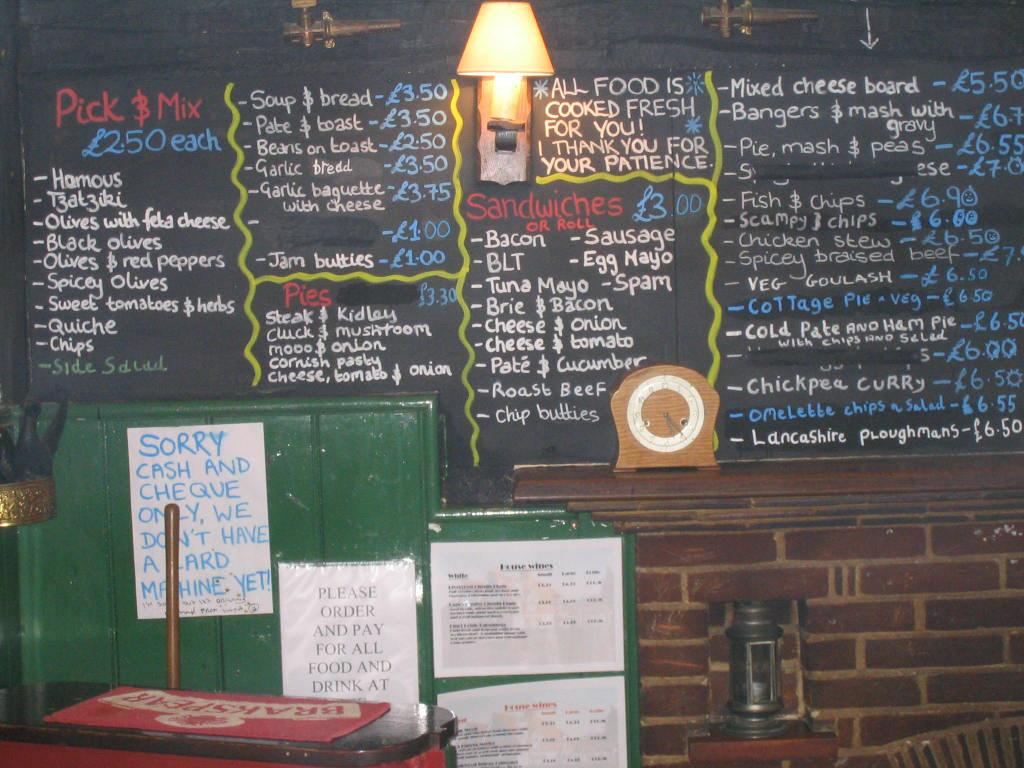 Pick & Mix
£2.50 each
- Homous
- Tzatziki
- Olives with feta cheese
- Black olives
- Olives & red peppers
- Spicey Olives
- Sweet tomatoes & herbs
- Quiche
- Chips
- Side Salad
- Soup & bread - £3.50
- Pate & toast - £3.50
- Beans on toast - £2.50
- Garlic bread - £3.50
- Garlic baguette - £3.75
with cheese
- - £1.00
- Jam butties - £1.00
Pies £3.30
Steak & Kidley
cluck & mushtroom
mooo & onion
cornish pasty
cheese, tomato & onion
ALL FOOD IS
COOKED FRESH
FOR YOU!
I THANK YOU FOR
YOUR PATIENCE.
Sandwiches £3.00
OR ROLL
- Bacon - Sausage
- BLT - Egg Mayo
- Tuna Mayo - Spam
- Brie & Bacon
- Cheese & onion
- cheese & tomato
- Paté & Cucumber
- Roast Beef
- Chip butties
- Mixed cheese board - £5.50
- Bangers & mash with - £6.7
gravy
- Pie, mash & peas - £6.55
- S ese - £7.0
- Fish & chips - £6.90
- Scampy & chips - £6.00
- Chicken stew - £6.50
- Spicey braised beef - £7.
- VEG GOULASH - £6.50
- COTTage PIE - Veg - £6.50
- COLD Pate AND Ham Pie - £6.50
with chips and salad
- s - £6.00
- Chickpea CURRY - £6.50
- omelette chips n Salad - £6.55
- Lancashire Ploughmans - £6.50
SORRY
CASH AND
CHEQUE
ONLY, WE
DON'T HAVE
A CARD
MACHINE YET!
PLEASE
ORDER
AND PAY
FOR ALL
FOOD AND
DRINK AT
House wines
White
House wines
BRAKSPEAR